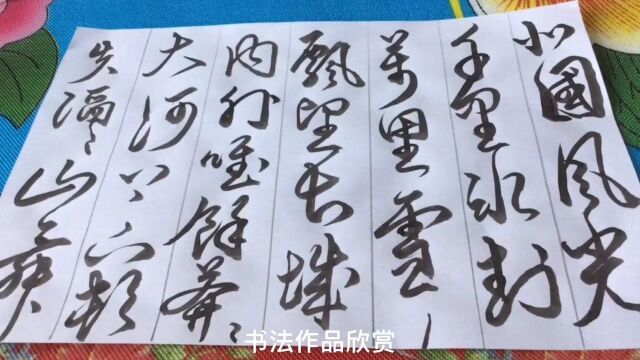 北國风光
千里冰封
萬里雪
飄望长城
内外唯餘莽〻
大河上下顿
失滔〻山舞
书法作品欣赏